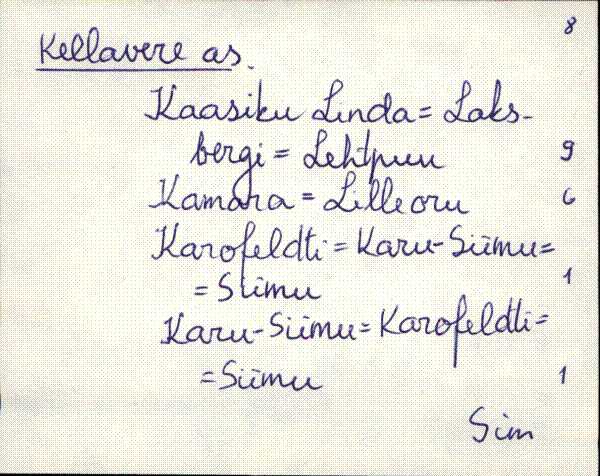 8
Kellavere as.
Kaasiku Linda = Laks-
bergi = Lehtpuu 9
Kamara = Lilleoru 6
Karofeldti = Karu-Siimu =
= Siimu 1
Karu-Siimu = Karofeldti =
= Siimu 1
Sim